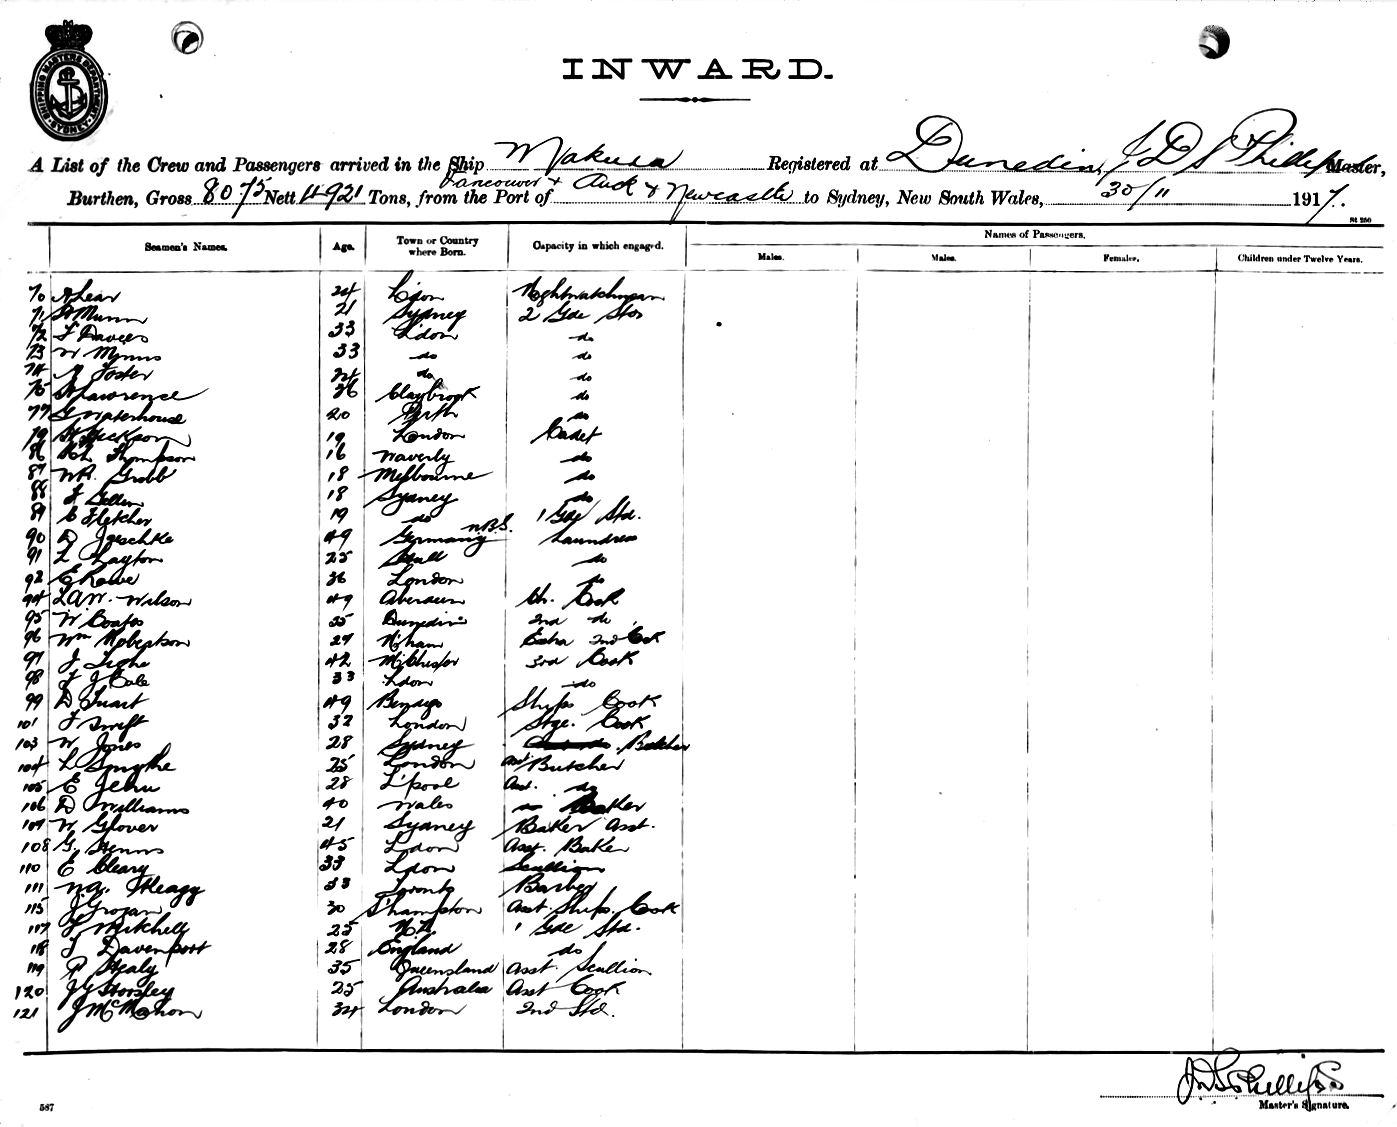 SHIPPING MASTERS DEPARTMENT SYDNEY
INWARD.
A List of the Crew and Passengers arrived in the Ship Makura Registered at Dunedin, J D S Phillips Master,
Burthen, Gross 8075 Nett 4921 Tons, from the Port of Vancouver & Auck & Newcastle to Sydney, New South Wales, 30/11 1917.
St 250
Seamen's Names. Age. Town or Country where Born. Capacity in which engaged. Names of Passengers.
Males. Males. Females. Children under Twelve Years.
70 A Lear 24 L'don Nightwatchman
71 Munn 21 Sydney 2 Gde Std
72 F Davies 33 L'don do
73 W Mynns 33 do do
74 Foster 24 do do
75 Lawrence 26 Claybrook do
77 G Waterhouse 20 Perth do
79 H Jackson 19 London Cadet
86 Thompson 16 Waverly do
87 WR. Grubb 18 Melbourne do
88 18 Sydney do
89 E Fletcher 19 do 1 Gde Std.
90 Jaeschke 49 Germany N.B.S. Laundress
91 L Layton 25 Hull do
92 E Rowe 36 London do
94 L.A.W. Wilson 49 Aberdeen Ch. Cook
95 W Coates 35 Dunedin 2nd do
96 Wm Robertson 27 N'ham Extra 2nd Cook
97 J 42 M'chester 3rd Cook
98 F J Cole 33 L'don do
99 D Stuart 49 Bendigo Ships Cook
101 F Swift 32 London Stge. Cook
103 W Jones 28 Sydney Butcher
104 L Smythe 25 London Asst Butcher
105 E Jehu 28 L'pool Asst. do
106 D Williams 40 Wales Baker
107 W Glover 21 Sydney Baker Asst.
108 G. 45 L'don Asst. Baker
110 E Cleary 33 L'don Scullion
111 Heagy 33 Toronto Barber
115 J Grogan 30 S'hampton Asst. Ships. Cook
117 F Mitchell 25 N.Z. 1 Gde Std.
118 F Davenport 28 England do
119 P Healy 35 Queensland Asst. Scullion
120 J Y Horsley 25 Australia Asst Cook
121 J McMahon 34 London 2nd Std.
J D S Phillips
Master's Signature.
587